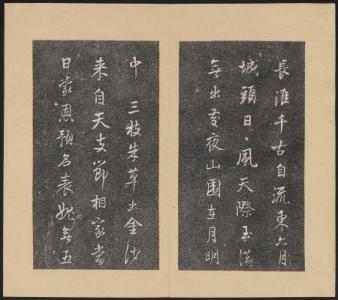 長淮千古自流東六月
城頭日日風天際玉潢
無出處夜山園在月明
中 三枝朱草出金沙
来自天支節相家當
日蒙恩預名表愧無五